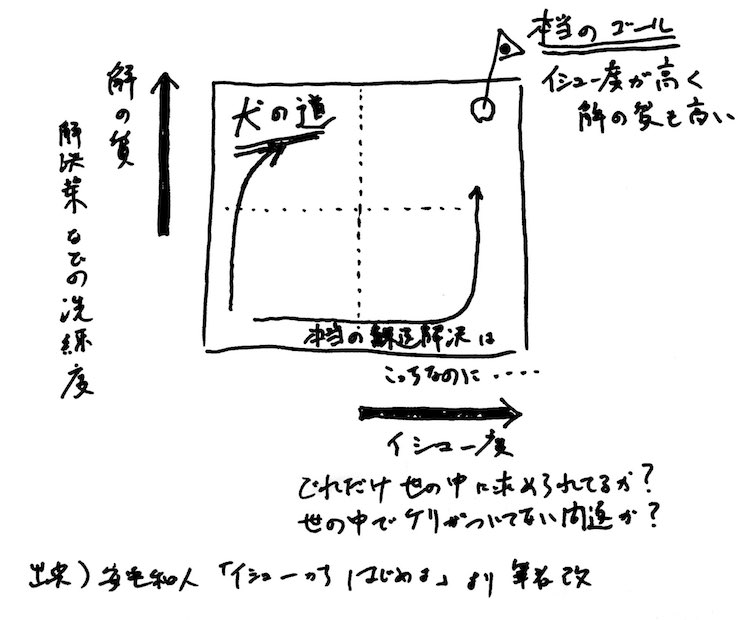 本当のゴール
イシュー度が高く
解の質も高い
解の質
解決策などの洗練度
犬の道
本当の課題解決は
こっちなのに‥‥‥
イシュー度
どれだけ世の中に求められてるか?
世の中でケリがついてない問題か?
出典)安宅和人「イシューからはじめよ」より 筆者改